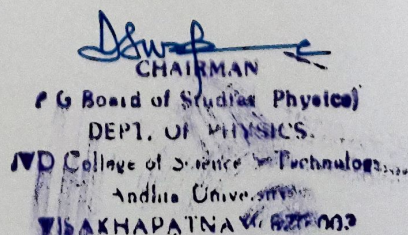 CHAIRMAN
P G Board of Studies Physics)
DEPT. OF PHYSICS.
College of Science Technology
Andhra University
VISAKHAPATNAM